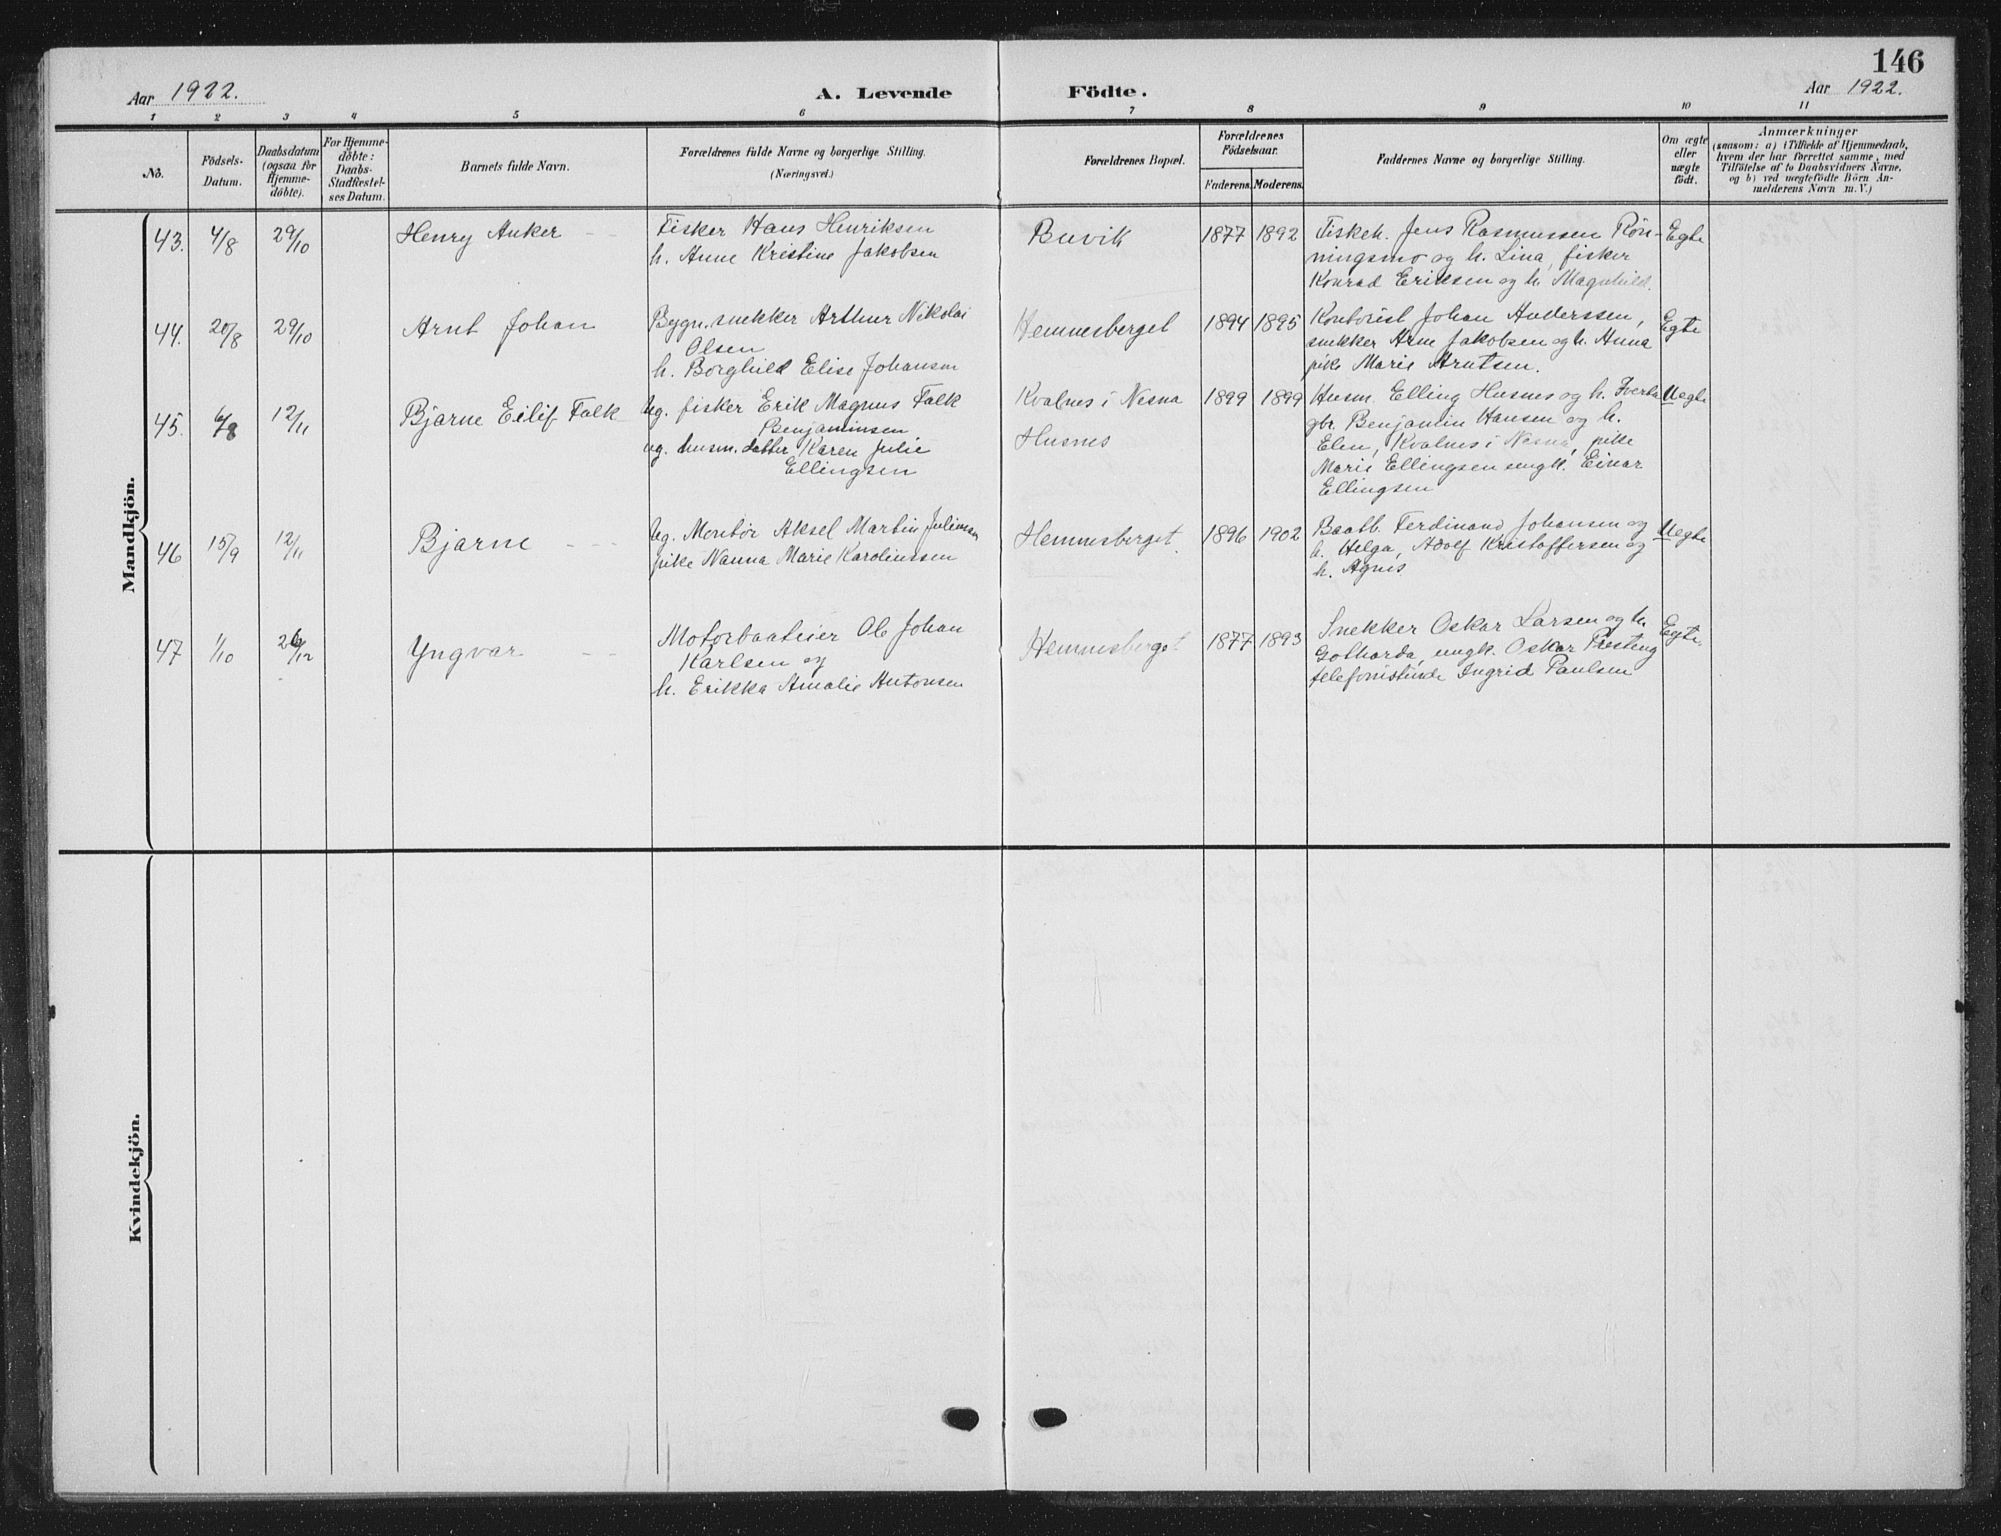 146
Aar 1922.
A. Levende Födte.
Aar 1922.
1 2 3 4 5 6 7 8 9 10 11
No.
Födsels-
Datum.
Daabsdatum
(ogsaa for
Hjemme-
döbte).
For Hjemme-
döbte:
Daabs-
Stadfæstel-
ses Datum.
Barnets fulde Navn.
Forældrenes fulde Navne og borgerlige Stilling.
(Næringsvei.)
Forældrenes Bopæl.
Forældrenes
Födselsaar.
Faderens. Moderens.
Faddernes Navne og borgerlige Stilling.
Om ægte
eller
uægte
födt.
Anmærkninger
(saasom: a) i Tilfælde af Hjemmedaab,
hvem der har forrettet samme, med
Tilföielse af to Daabsvidners Navne,
og b) ved uægtefödte Börn An-
melderens Navn m. V.)
Mandkjön.
43. 4/8 29/10 Henry Anker
Fisker Hans Henriksen
h. Anne Kristine Jakobsen
Buvik 1877 1892
Fiskeh. Jens Rasmussen Rön-
ningsmo og h. Lina, fisker
Konrad Eriksen og h. Magnhild.
Egte
44. 20/8 29/10 Arnt Johan
Bygn.snekker Arthur Nikolai
Olsen
h. Borghild Elise Johansen
Hemnesberget 1894 1895
Kontorist Johan Anderssen,
snekker Arne Jakobsen og h. Anna
pike Marie Arntsen.
Egte
45. 6/8 12/11 Bjarne Eilif Falk
Ug. fisker Erik Magnus Falk
Benjaminsen
ug. husm. datter Karen Julie
Ellingsen
Kvalnes i Nesna
Husnes
1899 1899
Husm. Elling Husnes og h.
gbr. Benjamin Hansen og h.
Elen, Kvalnes i Nesna, pike
Marie Ellingsen ungk. Einar
Ellingsen
Uegte
46 15/9 12/11 Bjarne
Ug. Montör Aksel Martin Juliussen
pike Nanna Marie Karolinssen
Hemnesberget. 1896 1902
Baatb. Ferdinand Johansen og
h. Helga, Adolf Kristoffersen og
h. Agnes
Uegte
47 1/10 26/12 Yngvar
Motorbaateier Ole Johan
Karlsen og
h. Erikka Amalie Antonsen
Hemnesberget 1877 1893
Snekker Oskar Larsen og h.
Gotharda, ungk. Oskar Presteng
telefonistinde Ingrid Paulsen
Egte.
Kvindekjön.